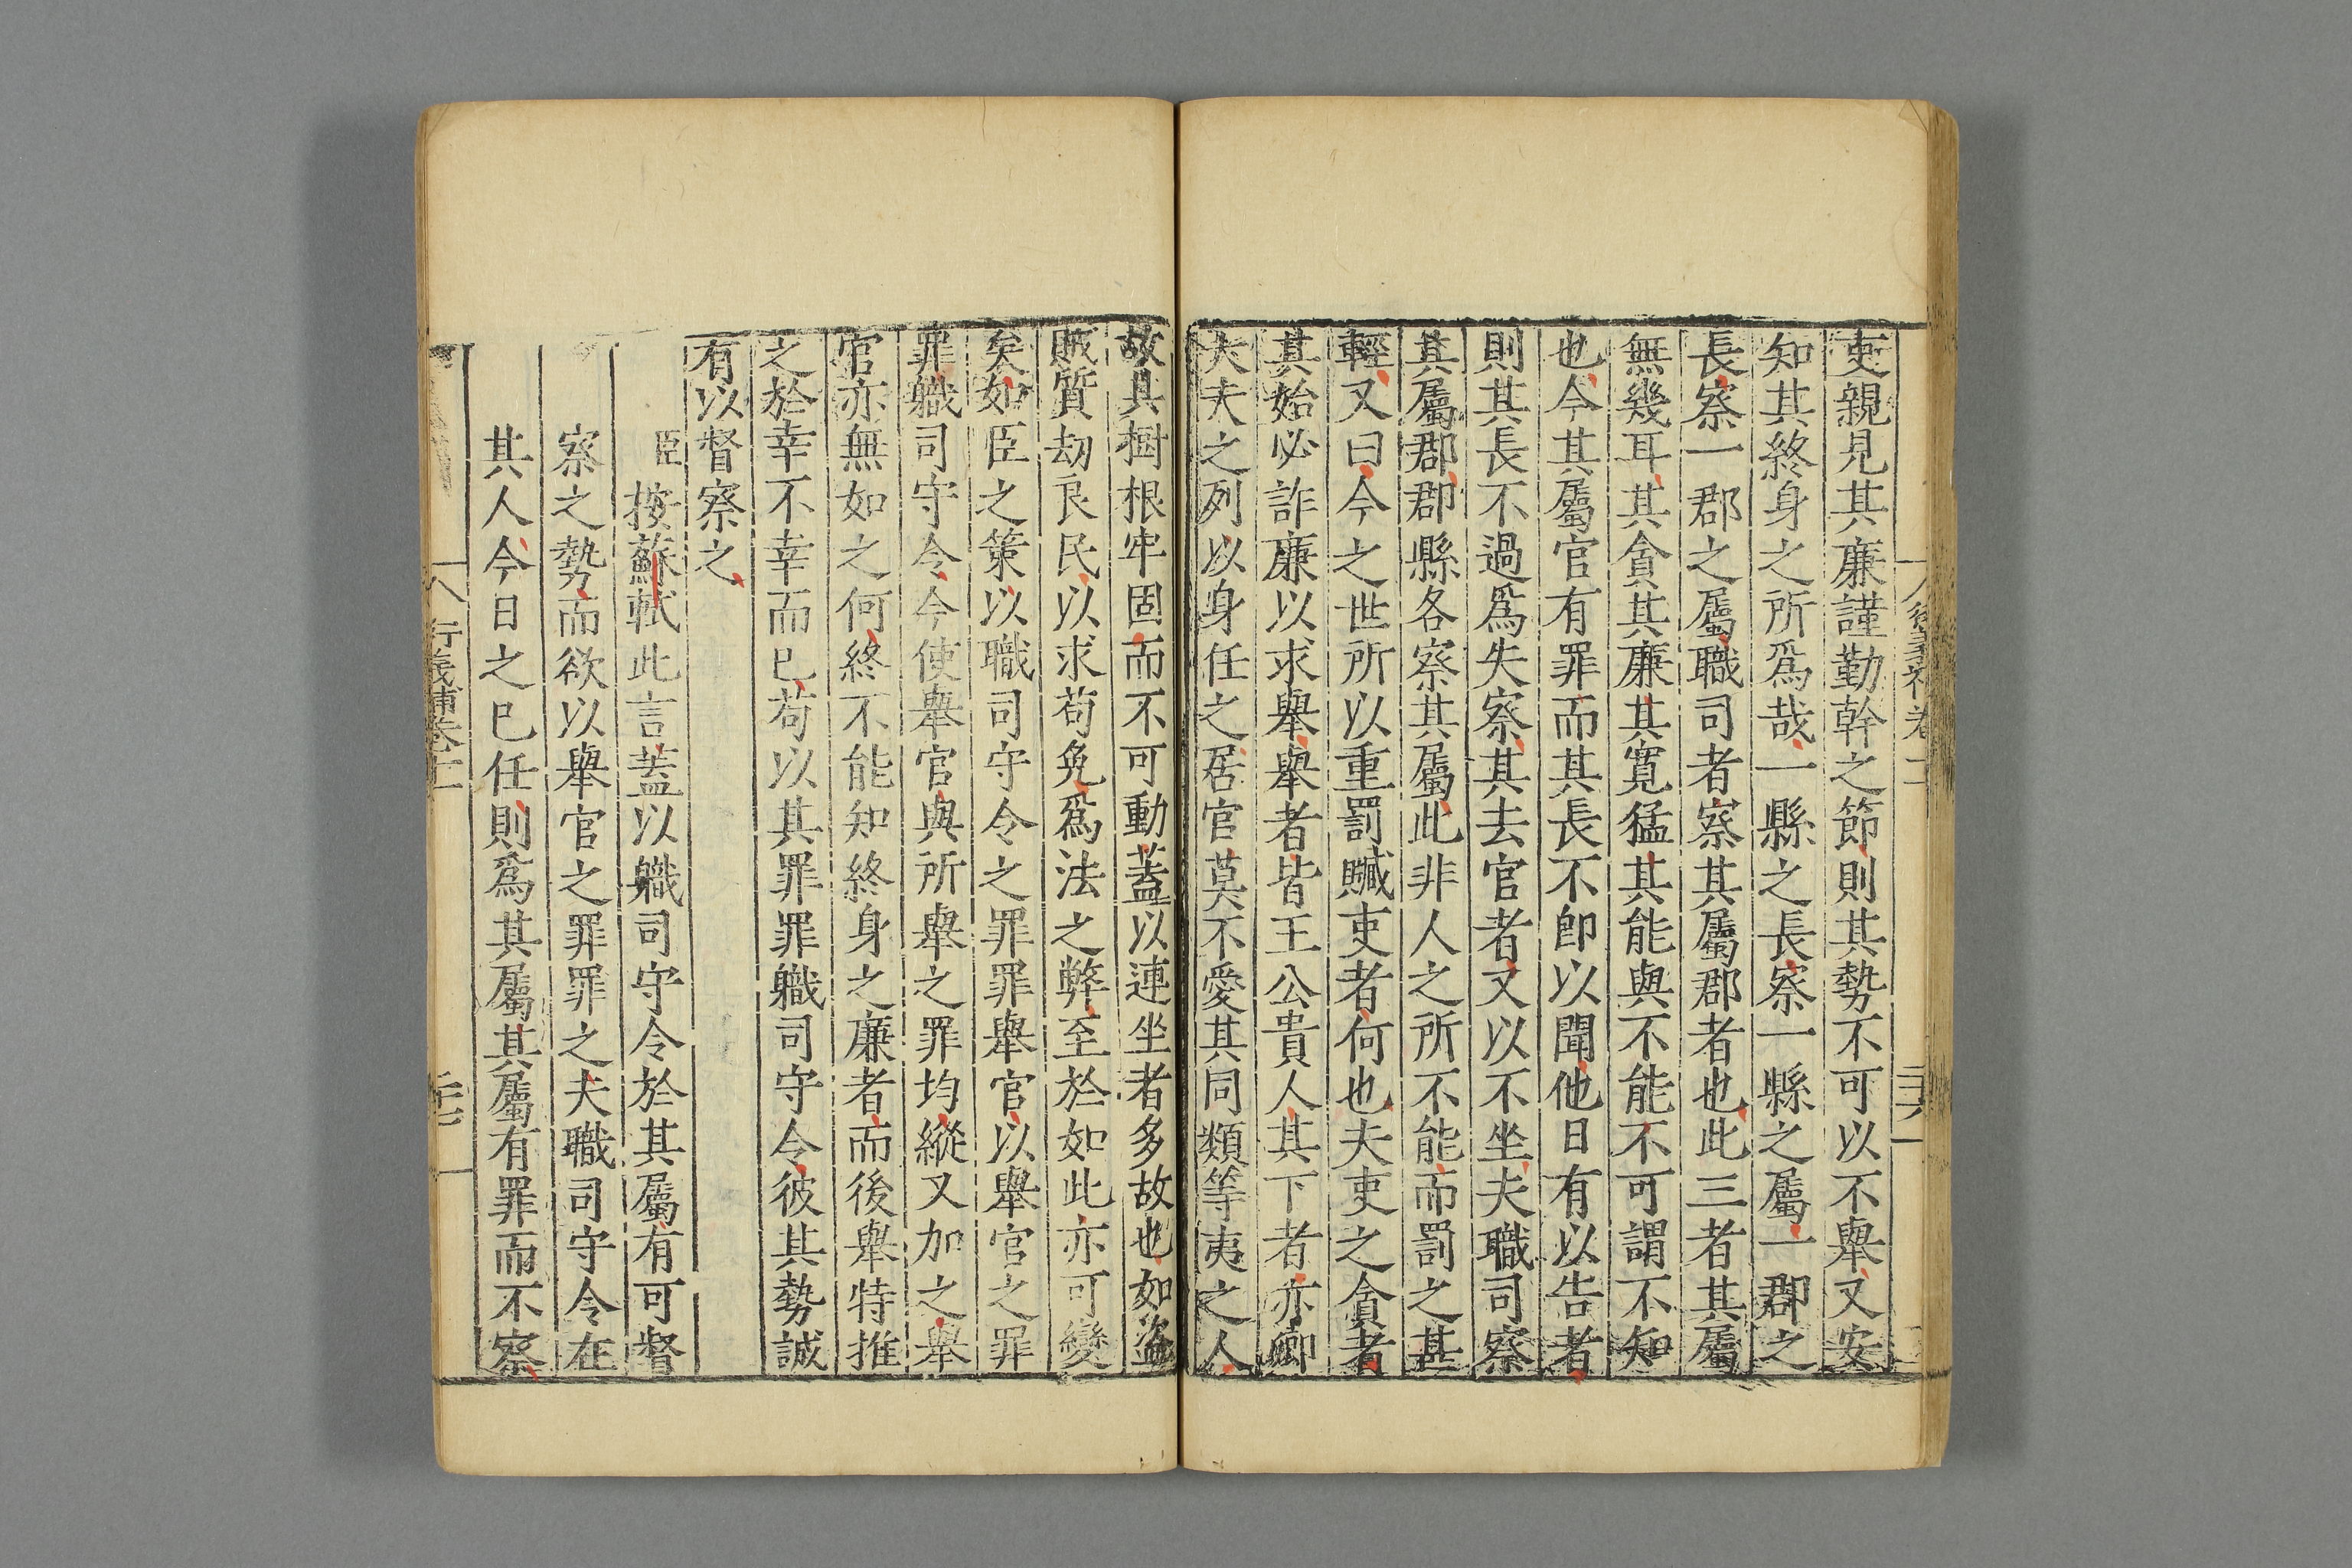 吏親見其廉謹勤幹之節則其勢不可以不舉又安
知其終身之所爲哉一縣之長察一縣之屬一郡之
長察一郡之屬職司者察其屬郡者也此三者其屬
無幾耳其貪其廉其寬猛其能與不能不可謂不知
也今其屬官有罪而其長不卽以聞他日有以告者
則其長不過爲失察其去官者又以不坐夫職司察
其屬郡郡縣各察其屬此非人之所不能而罰之甚
輕又曰今之世所以重罰贓吏者何也夫吏之貪者
其始必詐廉以求舉舉者皆王公貴人其下者亦卿
大夫之列以身任之居官莫不愛其同類等夷之人
故其樹根牢固而不可動蓋以連坐者多故也如盜
賊質劫良民以求苟免爲法之弊至於如此亦可變
矣如臣之策以職司守令之罪罪舉官以舉官之罪
罪職司守令今使舉官與所舉之罪均縱又加之舉
官亦無如之何終不能知終身之廉者而後舉特推
之於幸不幸而已苟以其罪罪職司守令彼其勢誠
有以督察之
臣按蘇軾此言蓋以職司守令於其屬有可督
察之勢而欲以舉官之罪罪之夫職司守令在
其人今日之已任則爲其屬其屬有罪而不察
行義補卷十一